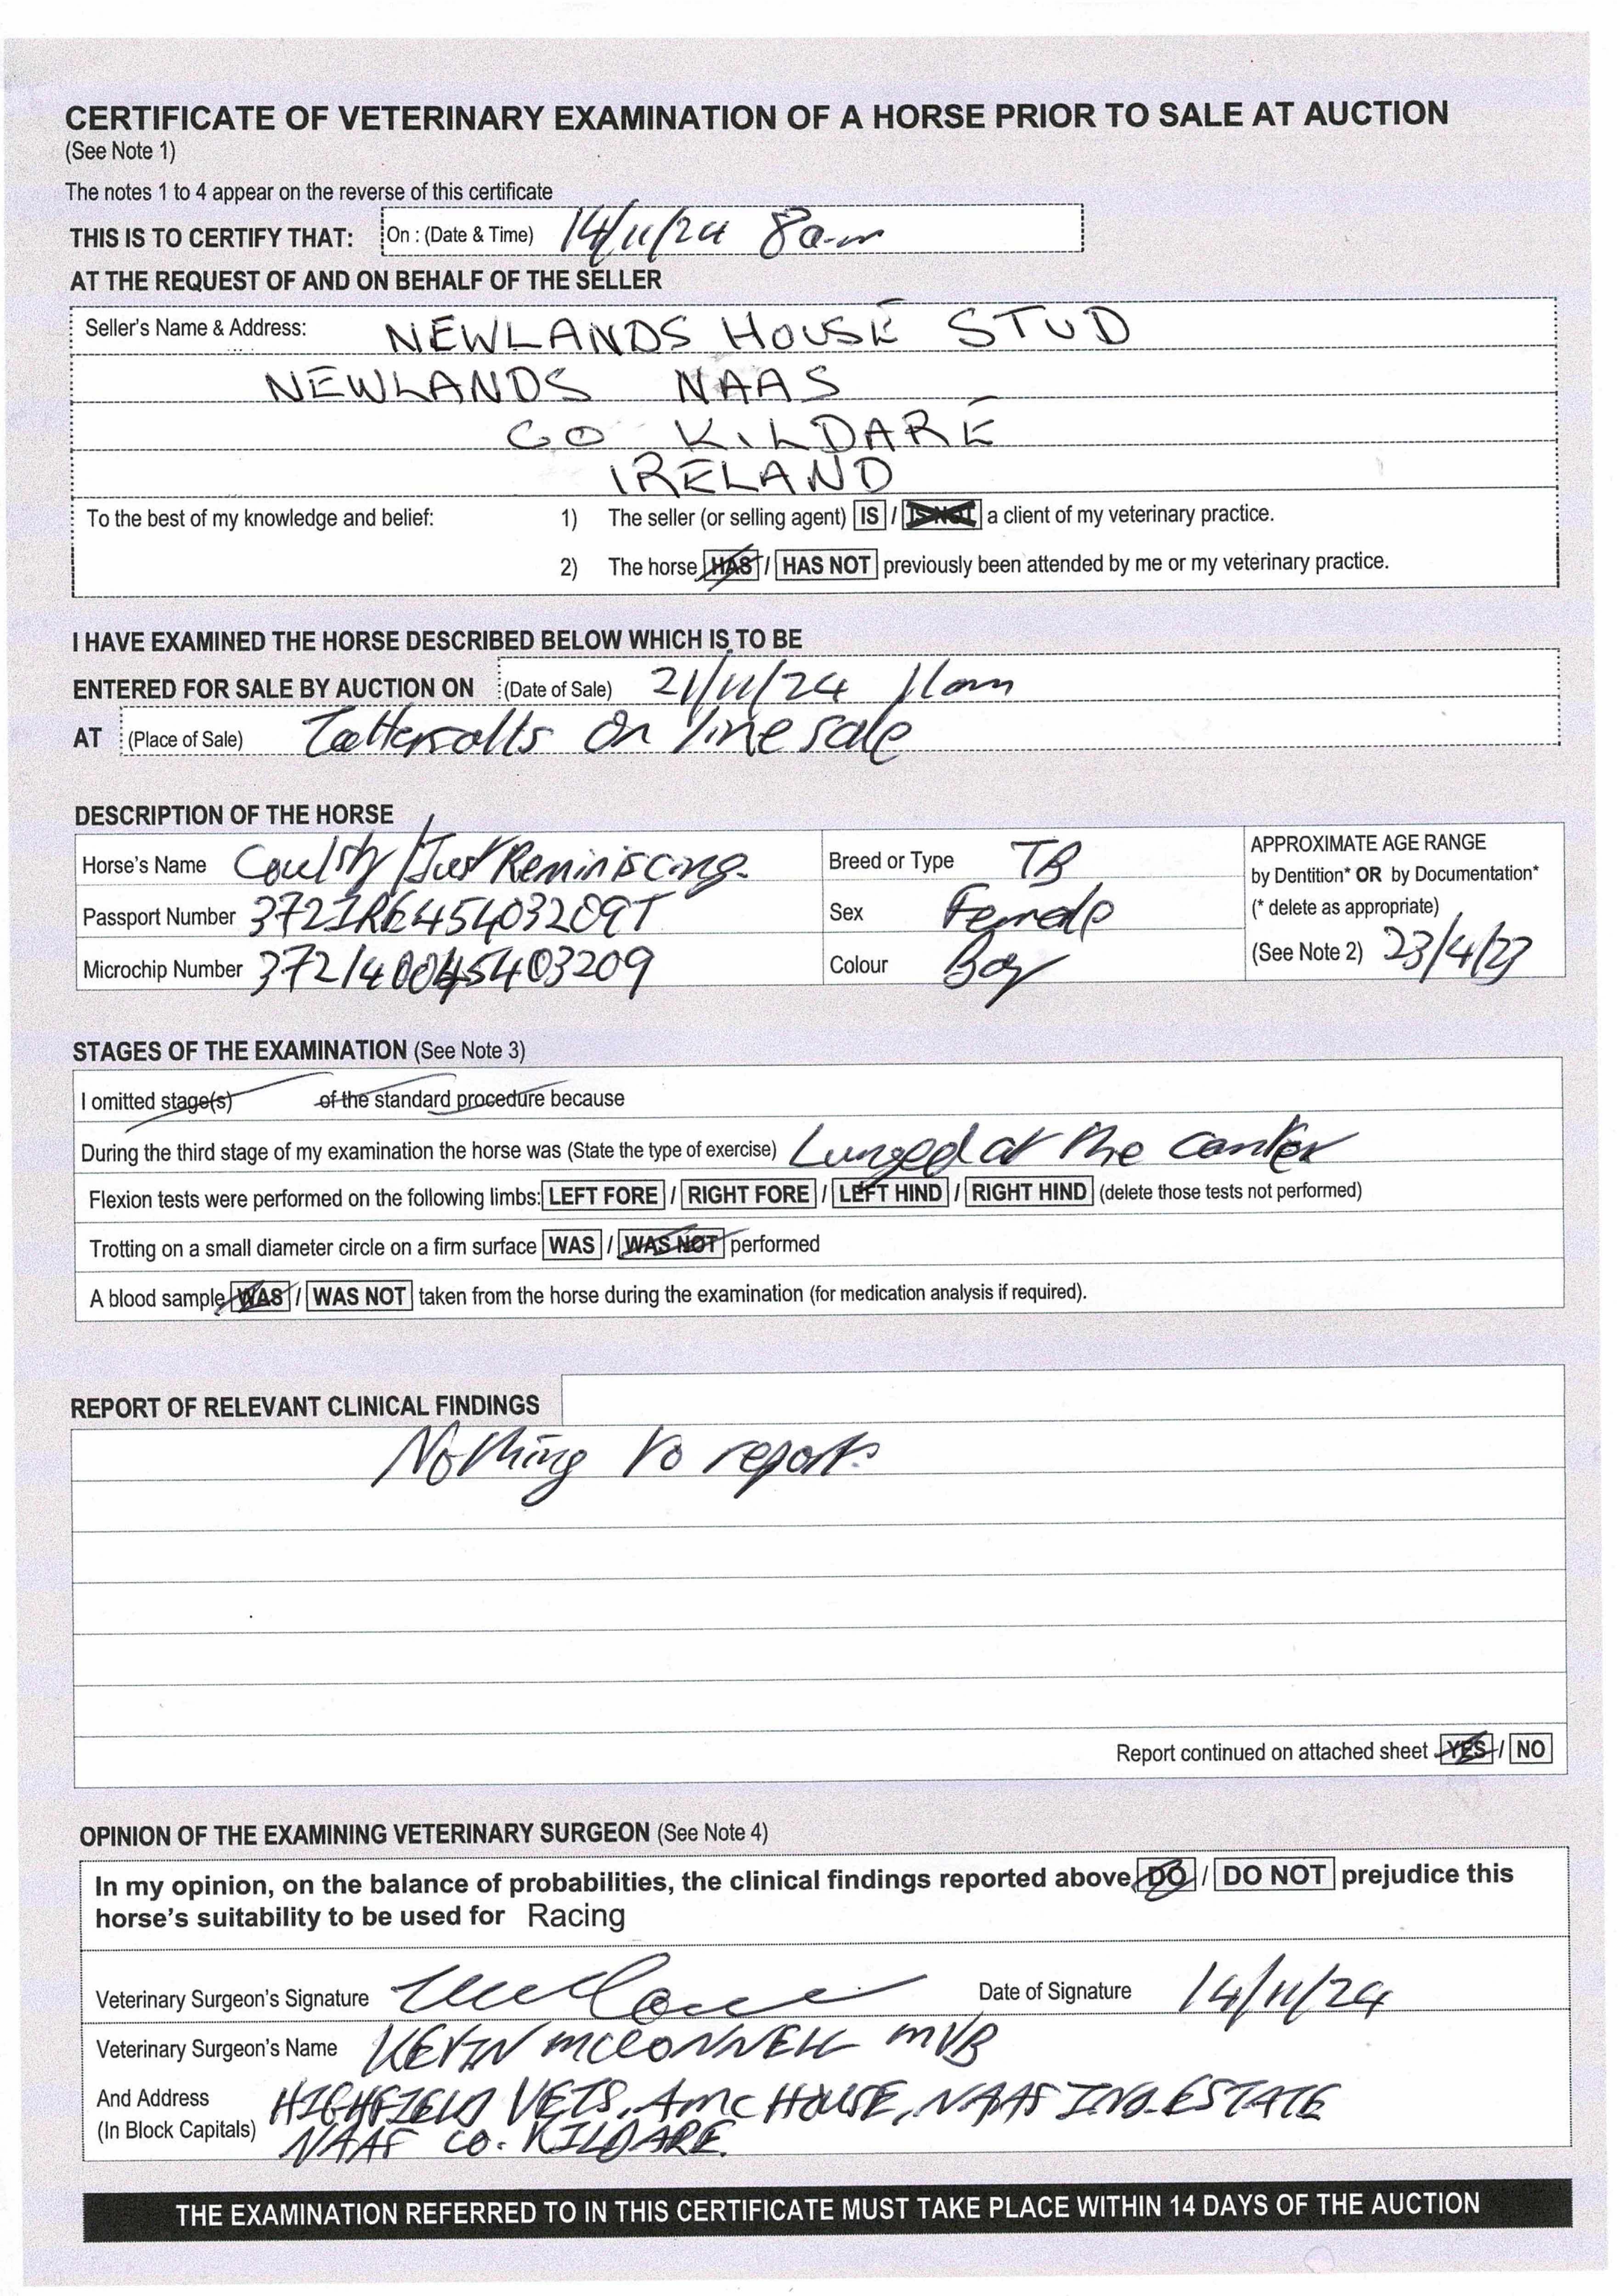 CERTIFICATE OF VETERINARY EXAMINATION OF A HORSE PRIOR TO SALE AT AUCTION
(See Note 1)
The notes 1 to 4 appear on the reverse of this certificate
THIS IS TO CERTIFY THAT: On : (Date & Time) 14/11/24 8am
AT THE REQUEST OF AND ON BEHALF OF THE SELLER
Seller's Name & Address: NEWLANDS HOUSE STUD
NEWLANDS NAAS
CO KILDARE
IRELAND
To the best of my knowledge and belief: 1) The seller (or selling agent) IS / IS NOT a client of my veterinary practice.
2) The horse HAS / HAS NOT previously been attended by me or my veterinary practice.
I HAVE EXAMINED THE HORSE DESCRIBED BELOW WHICH IS TO BE
ENTERED FOR SALE BY AUCTION ON (Date of Sale) 21/11/24 11am
AT (Place of Sale) Tattersalls On line sale
DESCRIPTION OF THE HORSE
Horse's Name Coulsty / Just Reminiscing Breed or Type TB APPROXIMATE AGE RANGE
by Dentition* OR by Documentation*
Passport Number 372IRE45403209T Sex Female (* delete as appropriate)
Microchip Number 372140045403209 Colour Bay (See Note 2) 23/4/23
STAGES OF THE EXAMINATION (See Note 3)
I omitted stage(s) of the standard procedure because
During the third stage of my examination the horse was (State the type of exercise) Lunged at the canter
Flexion tests were performed on the following limbs: LEFT FORE / RIGHT FORE / LEFT HIND / RIGHT HIND (delete those tests not performed)
Trotting on a small diameter circle on a firm surface WAS / WAS NOT performed
A blood sample WAS / WAS NOT taken from the horse during the examination (for medication analysis if required).
REPORT OF RELEVANT CLINICAL FINDINGS
Nothing to report
Report continued on attached sheet YES / NO
OPINION OF THE EXAMINING VETERINARY SURGEON (See Note 4)
In my opinion, on the balance of probabilities, the clinical findings reported above DO / DO NOT prejudice this
horse's suitability to be used for Racing
Veterinary Surgeon's Signature Date of Signature 14/11/24
Veterinary Surgeon's Name KEVIN MCCONNELL MVB
And Address HIGHFIELD VETS, AMC HOUSE, NAAS IND. ESTATE
(In Block Capitals) NAAS CO. KILDARE.
THE EXAMINATION REFERRED TO IN THIS CERTIFICATE MUST TAKE PLACE WITHIN 14 DAYS OF THE AUCTION